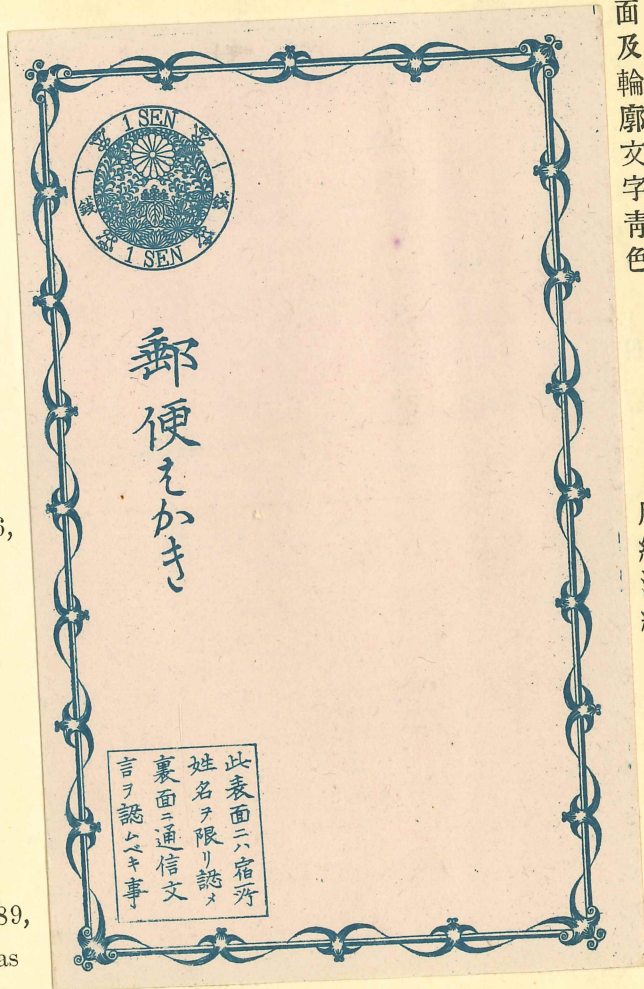 面及輪廓文字靑色
1 SEN
一錢
一錢
1 SEN
郵便はかき
此表面ニハ宿所
姓名ヲ限リ認メ
裏面ニ通信文
言ヲ認ムベキ事
6,
89,
as